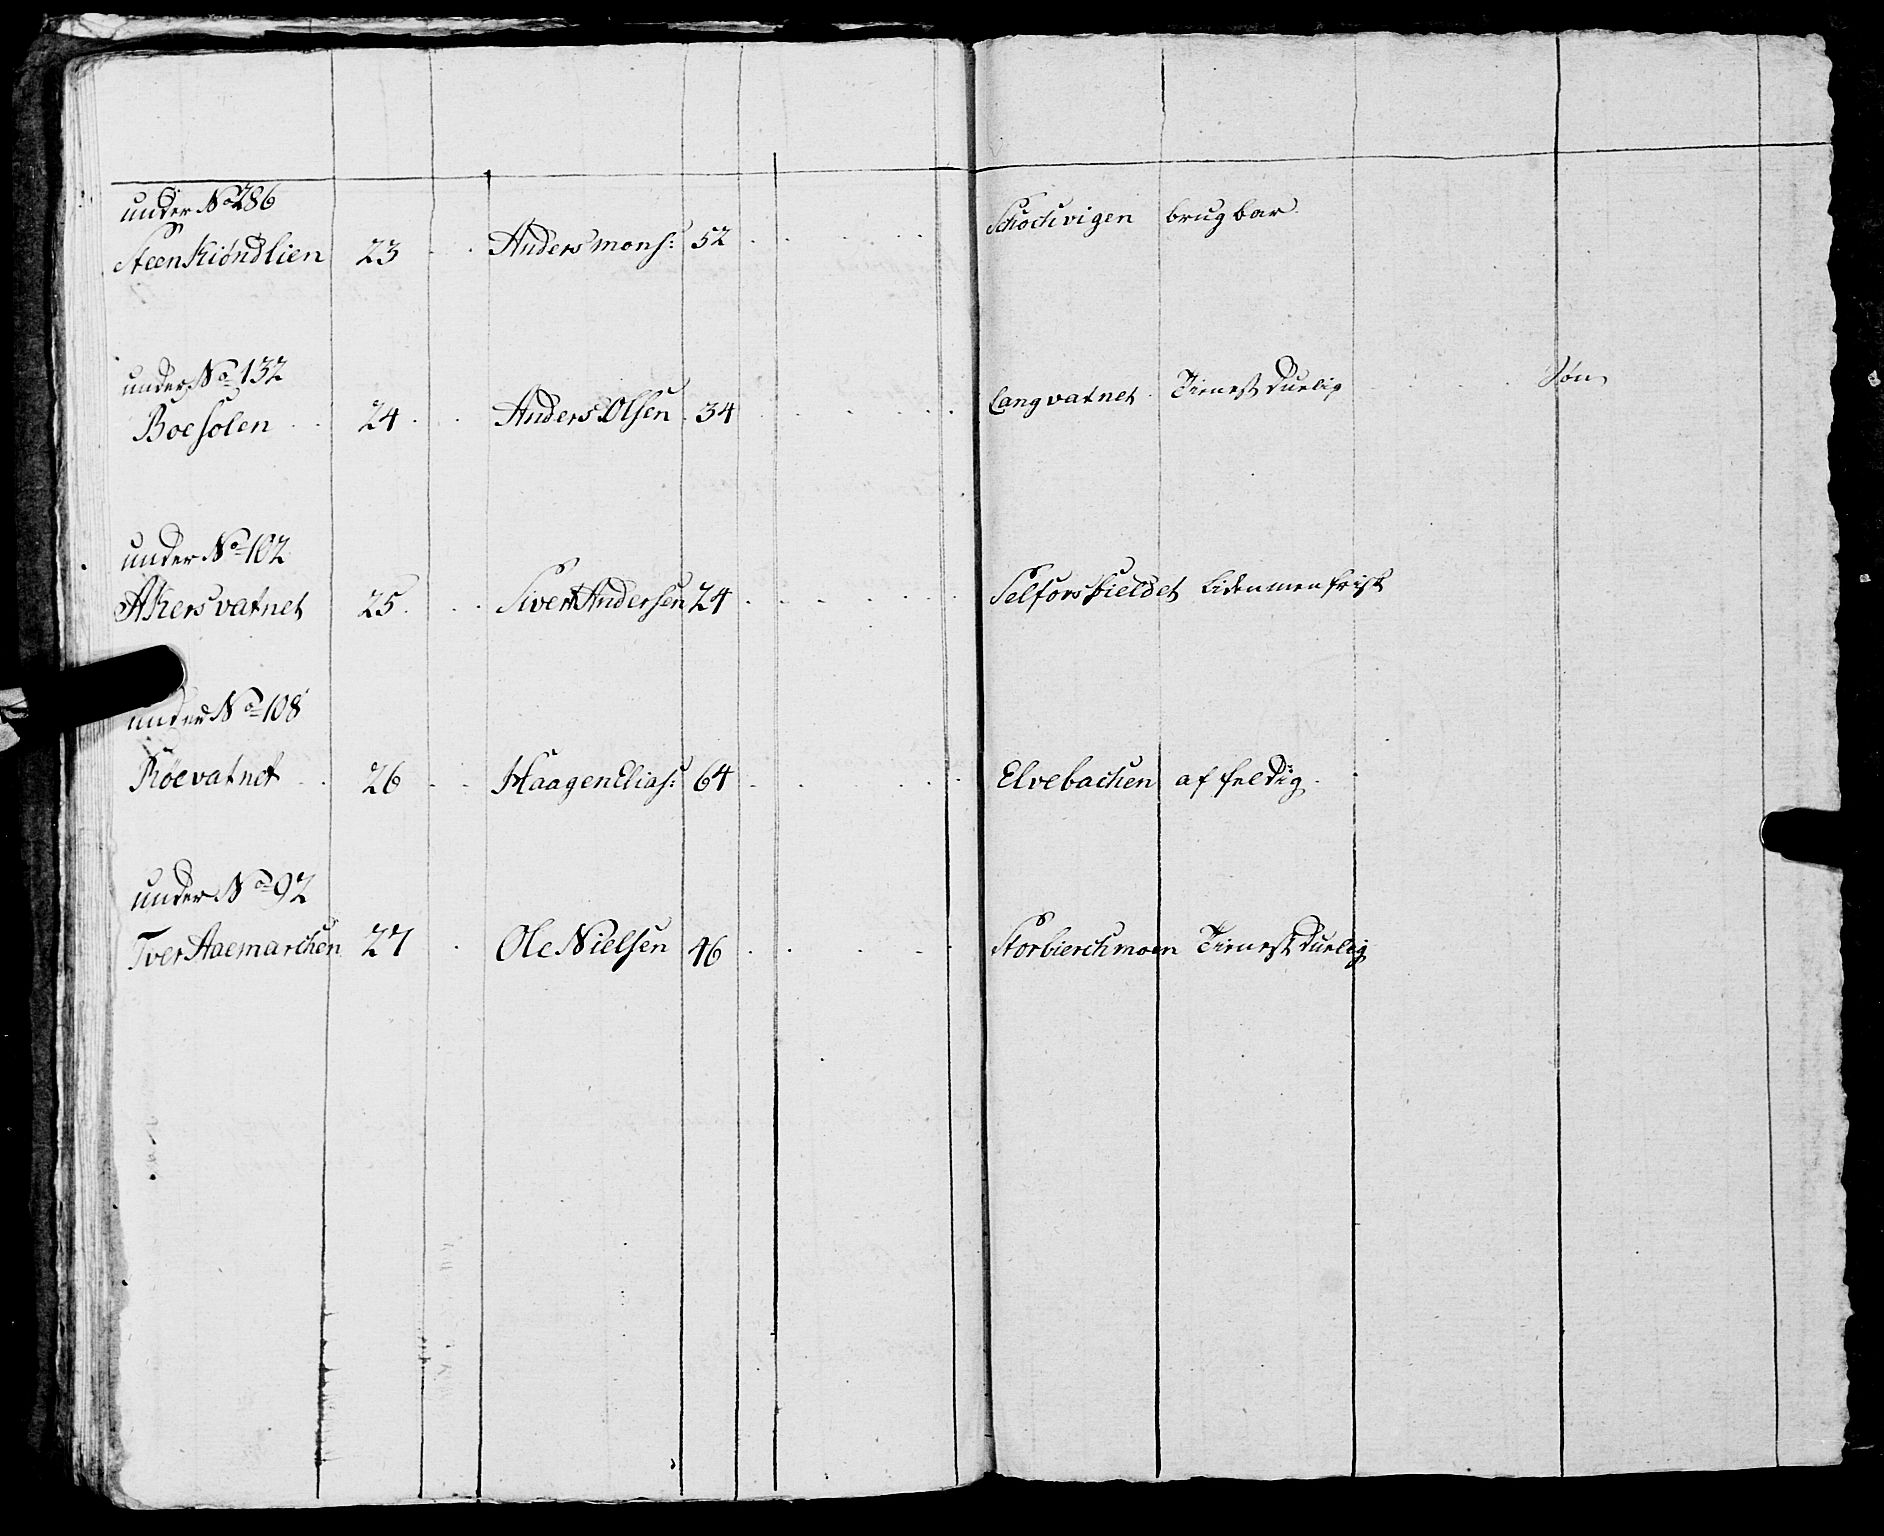 under No 286
SteenKiøndlien 23 Anders mons: 52 Schochvigen brugbar
under No 132
Boesolen 24 Anders Olsen 34 Langvatnet Tienest duelig Søn
under No 102
AKersvatnet 25 Siver Andersen 24 Selforsfieldet Liden men frisk
under No 108
Røevatnet 26 Haagen Elias: 64 Elvebachen affeldig
under No 92
TverAaemarchen 27 Ole Nielsen 46 Storbierchmoen Tienest duelig